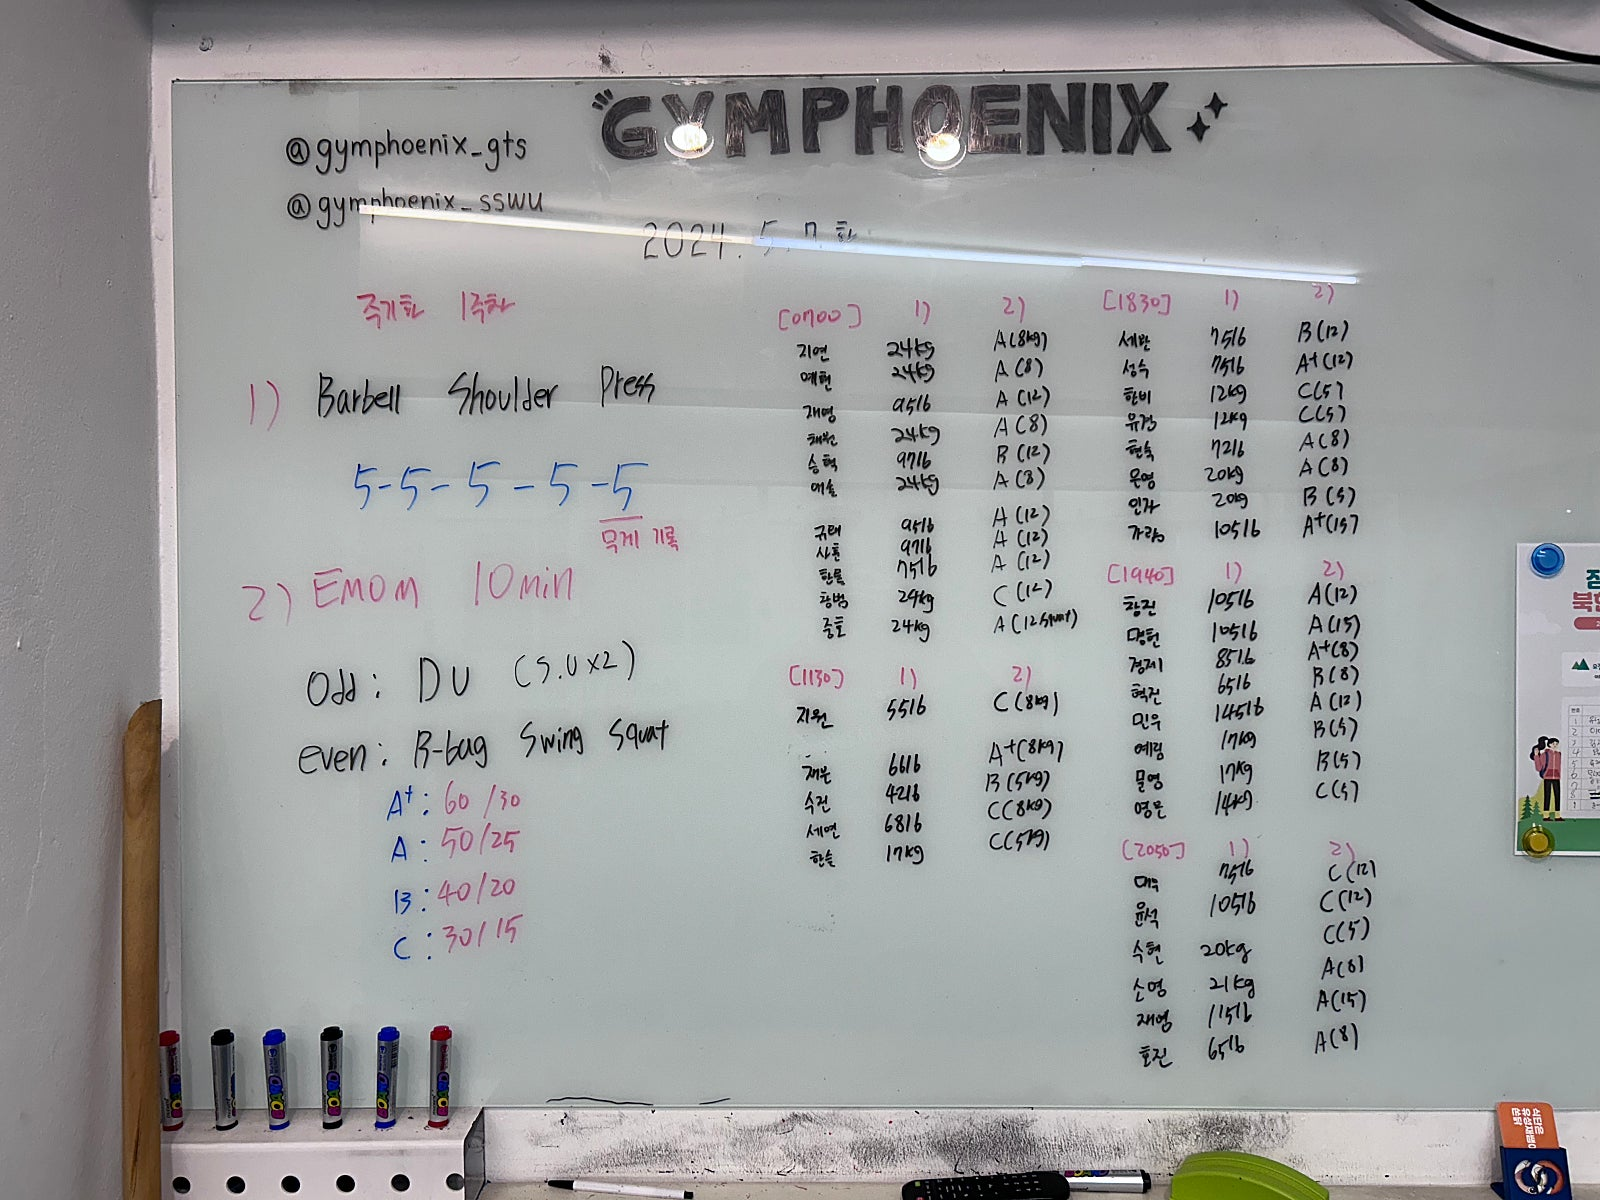 GYMPHOENIX
@gymphoenix_gts
@gymphoenix_sswu
2024. 5. 7. 화
주기화 1주차
1) Barbell Shoulder Press
5-5-5-5-5
무게 기록
2) EMOM 10min
Odd: DU (S.U x2)
even: B-bag Swing Squat
A+: 60/30
A: 50/25
B: 40/20
C: 30/15
[0700] 1) 2)
지연 24kg A(8kg)
예현 24kg A(8)
재영 95lb A(12)
채원 24kg A(8)
승혁 97lb B(12)
예솔 24kg A(8)
규태 95lb A(12)
상훈 97lb A(12)
한울 75lb A(12)
창범 24kg C(12)
준호 24kg A(12 squat)
[1130] 1) 2)
지원 55lb C(8kg)
재운 66lb A+(8kg)
수진 42lb B(5kg)
세연 68lb C(8kg)
한솔 17kg C(5kg)
[1830] 1) 2)
세란 75lb B(12)
성수 75lb A+(12)
한비 12kg C(5)
유경 12kg C(5)
현숙 72lb A(8)
은영 20kg A(8)
인자 20kg B(5)
가람 105lb A+(15)
[1940] 1) 2)
창진 105lb A(12)
명헌 105lb A(15)
경제1 85lb A+(8)
혁진 65lb B(8)
민우 145lb A(12)
예림 17kg B(5)
물영 17kg B(5)
영은 14kg C(5)
[2050] 1) 2)
75lb C(12)
윤석 105lb C(12)
수현 20kg C(5)
소영 21kg A(8)
재영 115lb A(15)
효진 65lb A(8)